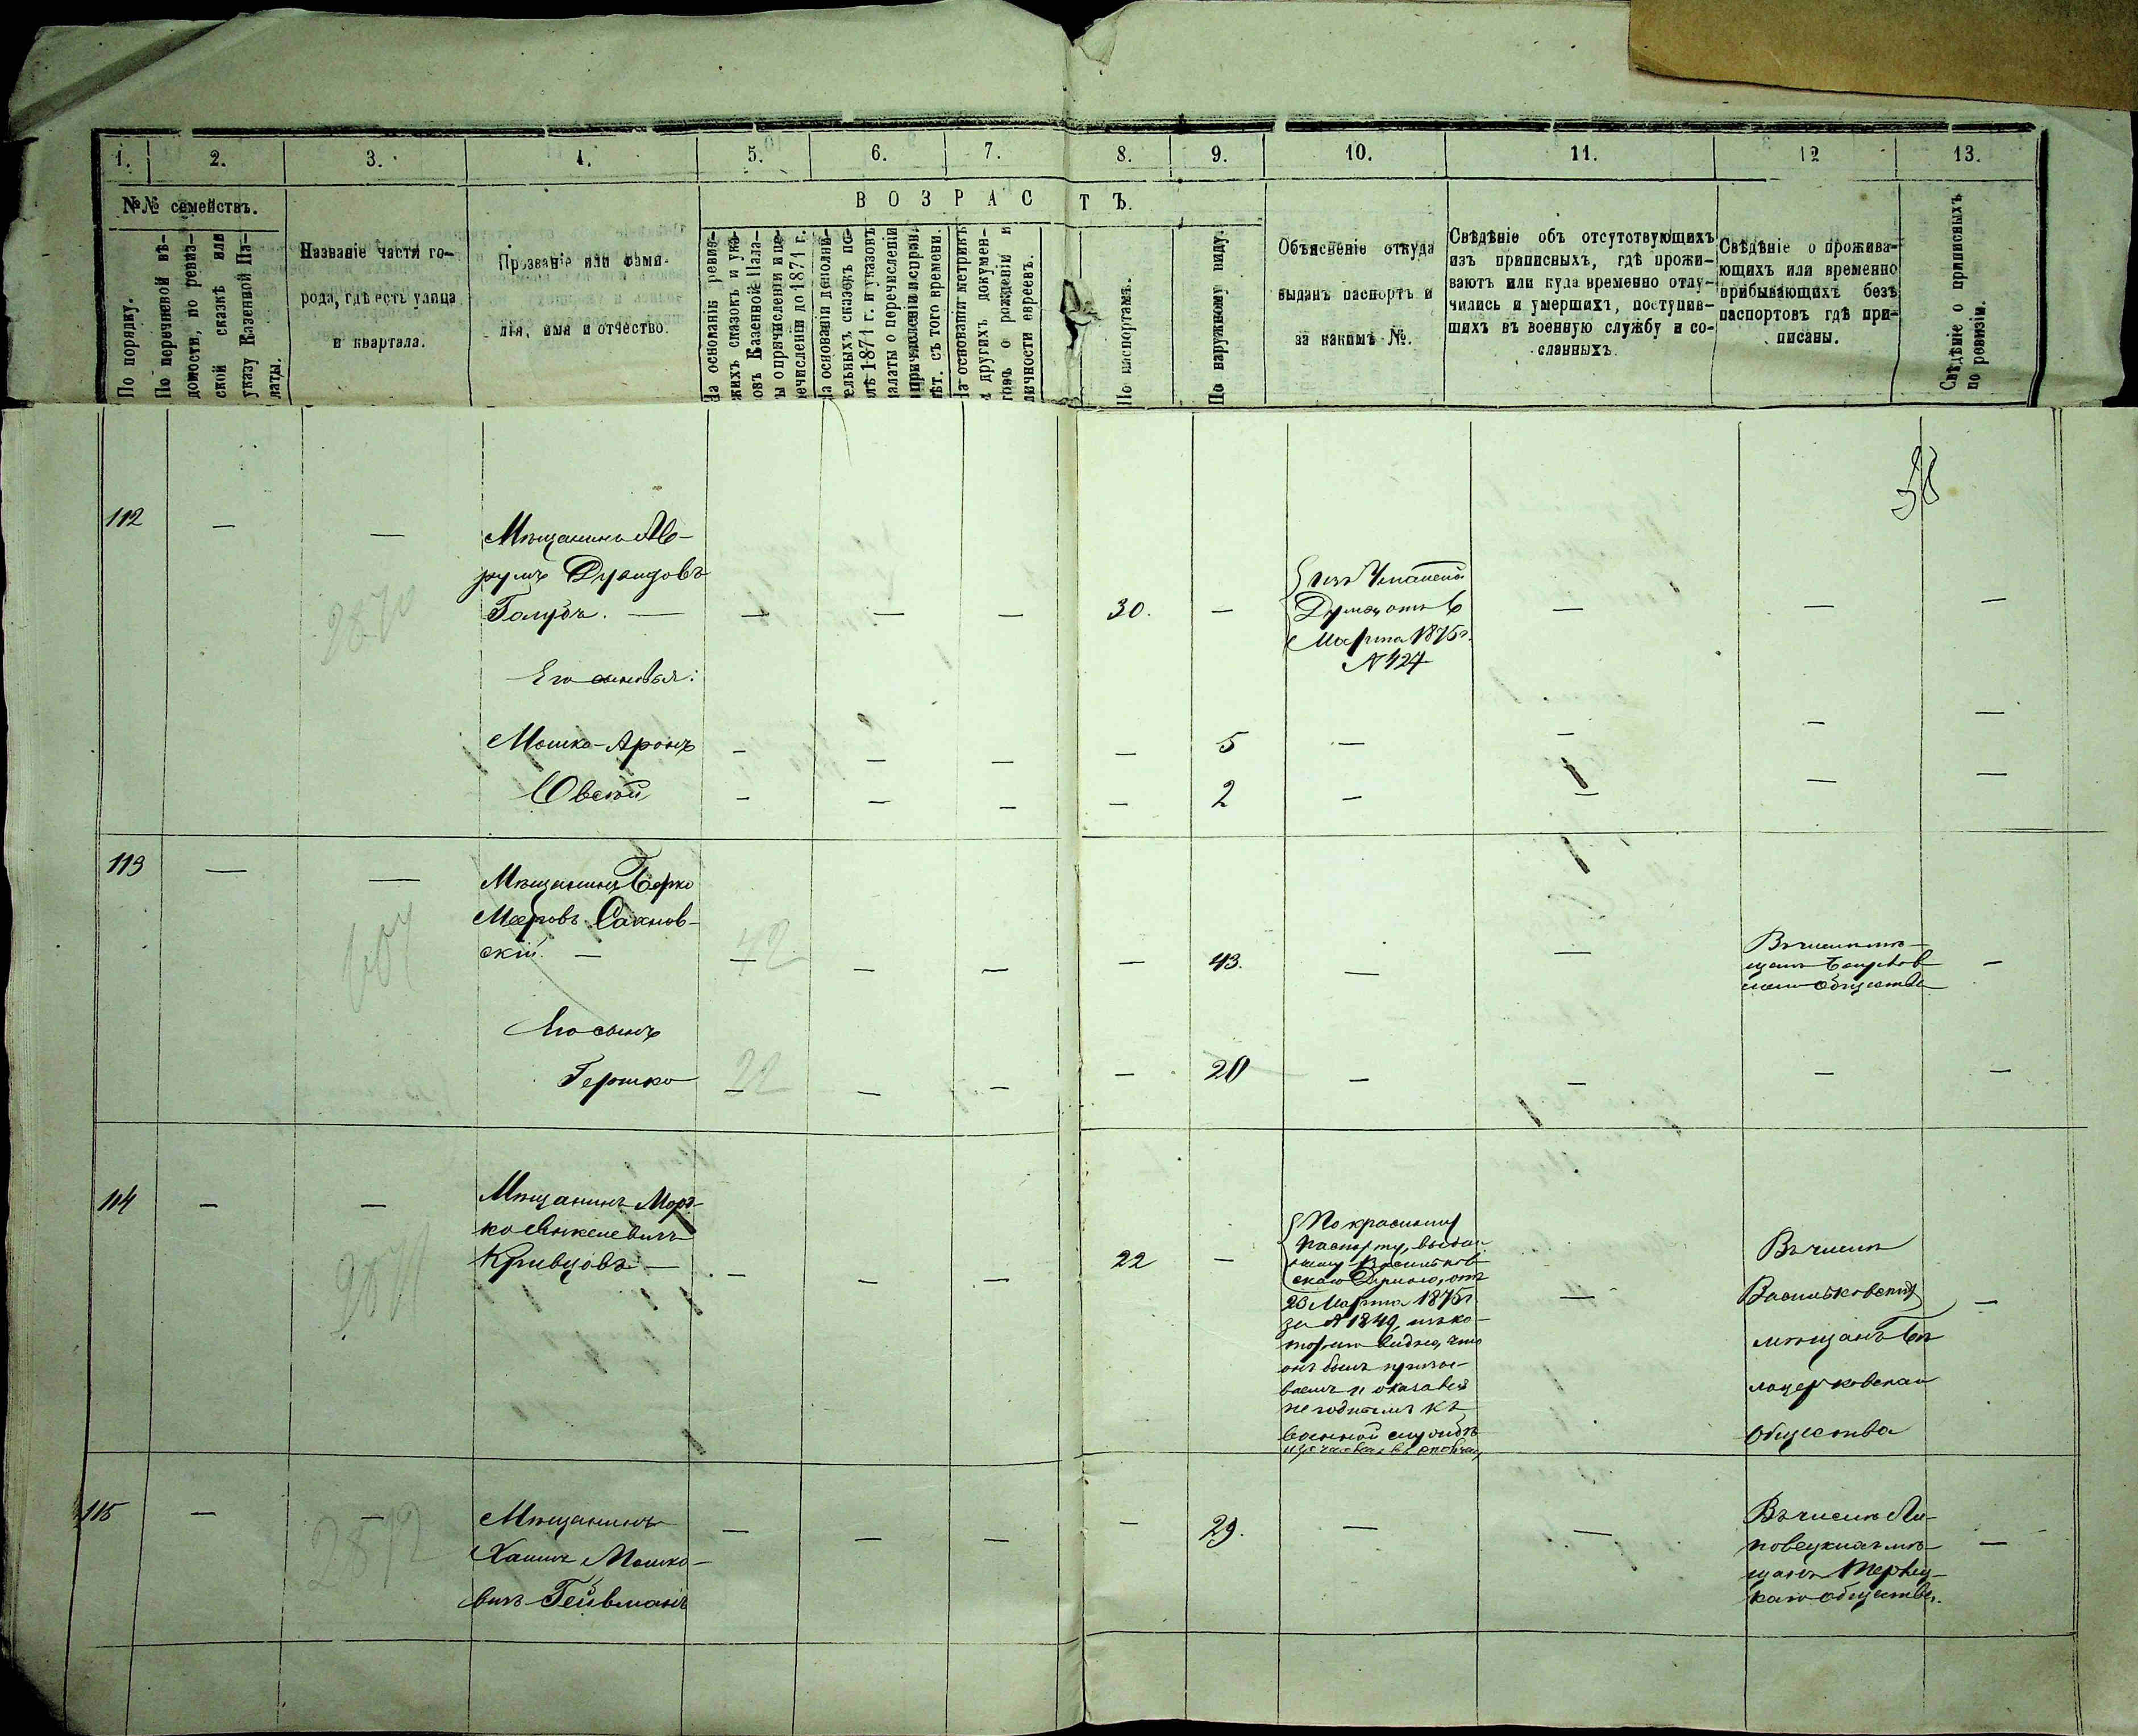 1. 2. 3. 4. 5. 6. 7. 8. 9. 10. 11. 12 13.
№№ семействъ.
По порядку.
По перечневой вѣ-
домости, по ревиз-
ской сказкѣ или
указу Казенной Па-
латы.
Названіе части го-
рода, гдѣ есть улица
и квартала.
Прозваніе или фами-
лія, имя и отчество.
ВОЗРАСТЪ.
На основаніи ревиз-
скихъ сказокъ и ука-
зовъ Казенной Пала-
ты о причисленіи и пе-
речисленіи до 1871 г.
На основаніи дополни-
тельныхъ сказокъ по-
слѣ 1871 г. и указовъ
палаты о перечисленіи
и причисленіи и исправл.
лѣт. съ того времени.
На основаніи метрикъ
и другихъ докумен-
товъ о рожденіи и
личности евреевъ.
По паспортамъ.
По наружному виду.
Объясненіе откуда
выданъ паспортъ и
за какимъ №.
Свѣдѣніе объ отсутствующихъ
изъ приписныхъ, гдѣ прожи-
ваютъ или куда временно отлу-
чились и умершихъ, поступив-
шихъ въ военную службу и со-
сланныхъ.
Свѣдѣніе о прожива-
ющихъ или временно
прибывающихъ безъ
паспортовъ гдѣ при-
писаны.
Свѣдѣніе о приписныхъ
по ревизіи.
58
112 — —
2870
Мѣщанинъ Ав-
румъ Дувидовъ
Голубъ. — — — — 30. — — — —
изъ Уманской
Думы отъ 6
Марта 1875 г.
№ 424
Его сыновья:
Мошко-Аронъ — — — — 5 — — — —
Овсѣй — — — — 2 — — — —
113 — —
607
Мѣщанинъ Берко
Мееровъ Сахнов-
скій. — — 42 — — — 43. — — —
Въ числѣ мѣ-
щанъ
общества
Его сынъ
Гершко — 22 — — — 20 — — — —
114 — —
2871
Мѣщанинъ Мор-
ко Янкелевичъ
Кривцовъ — — — — 22 — — —
По красному
паспорту, выдан-
ному Васильков-
скою Думою, отъ
23 Марта 1875 г.
за № 1849, изъ ко-
тораго видно, что
онъ былъ
и оказался
негоднымъ къ
военной службѣ
Въ числѣ
Васильковскихъ
мѣщанъ Бѣ-
лоцерковскаго
общества
115 — —
2872
Мѣщанинъ
Хаимъ Мошко-
вичъ Гейвманъ — — — — 29. — — —
Въ числѣ Ли-
повецкихъ мѣ-
щанъ
каго общества.